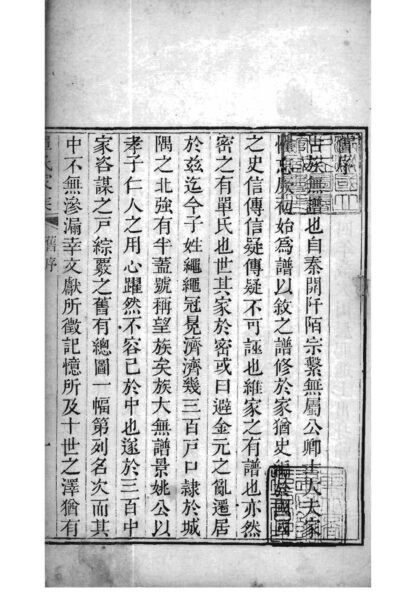 舊序
古族無譜也自秦開阡陌宗繫無屬公卿士大夫家
懼忘厥初始為譜以敘之譜修於家猶史編於國國
之史信傳信疑傳疑不可誣也維家之有譜也亦然
密之有單氏也世其家於密或曰避金元之亂遷居
於兹迄今子姓繩繩冠冕濟濟幾三百戸口隸於城
隅之北強有半蓋號稱望族矣族大無譜景姚公以
孝子仁人之用心躍然不容已於中也遂於三百中
家咨謀之戸綜覈之舊有總圖一幅第列名次而其
中不無滲漏幸文獻所徵記憶所及十世之澤猶有
舊序
一